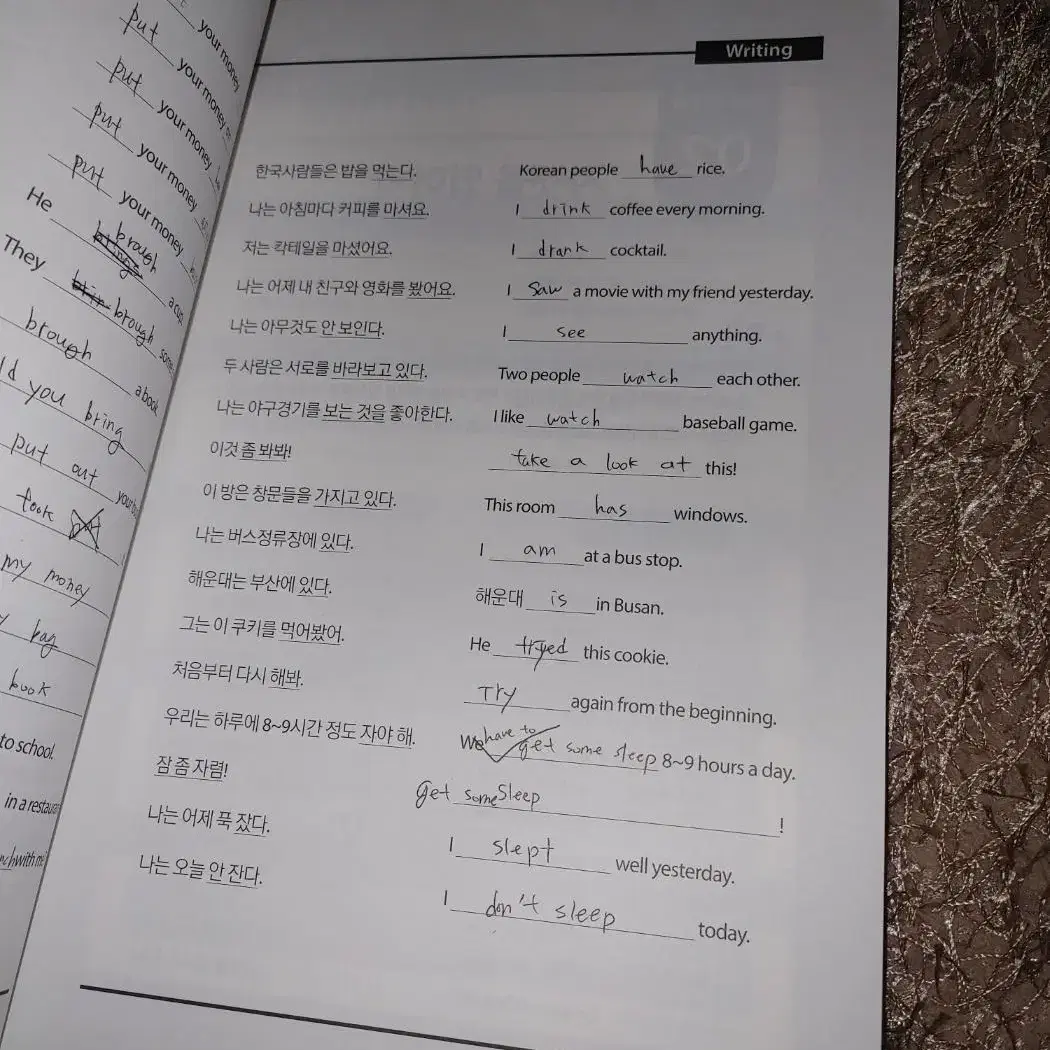 put your money
put your money
put your money
put your money
He brings brough a cup
They brough some
brough a book
ld you bring
put out your
took put
my money
bag
book
to school.
in a restau
with me
Writing
한국사람들은 밥을 먹는다. Korean people have rice.
나는 아침마다 커피를 마셔요. I drink coffee every morning.
저는 칵테일을 마셨어요. I drank cocktail.
나는 어제 내 친구와 영화를 봤어요. I saw a movie with my friend yesterday.
나는 아무것도 안 보인다. I see anything.
두 사람은 서로를 바라보고 있다. Two people watch each other.
나는 야구경기를 보는 것을 좋아한다. I like watch baseball game.
이것 좀 봐봐! take a look at this!
이 방은 창문들을 가지고 있다. This room has windows.
나는 버스정류장에 있다. I am at a bus stop.
해운대는 부산에 있다. 해운대 is in Busan.
그는 이 쿠키를 먹어봤어. He tryed this cookie.
처음부터 다시 해봐. Try again from the beginning.
우리는 하루에 8~9시간 정도 자야 해. We have to get some sleep 8~9 hours a day.
잠 좀 자렴! Get some sleep !
나는 어제 푹 잤다. I slept well yesterday.
나는 오늘 안 잔다. I don't sleep today.